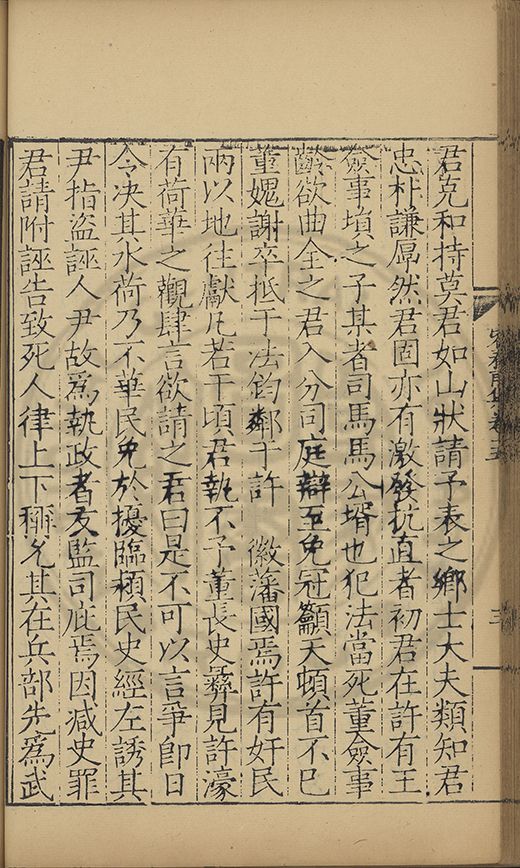 君克和持莫君如山狀請予表之鄉士大夫類知君
忠朴謙厚然君固亦有激發抗直者初君在許有王
僉事塤之子某者司馬馬公壻也犯法當死董僉事
齡欲曲全之君入分司庭辯至免冠籲天頓首不巳
董媿謝卒抵于法鈞鄰于許 徽藩國焉許有奸民
兩以地徃獻凡若干頃君執不予董長史彝見許濠
有荷華之觀肆言欲請之君曰是不可以言爭卽日
令决其水荷乃不華民免於擾臨潁民史經左誘其
尹指盜誣人尹故爲執政者友監司庇焉因减史罪
君請附誣告致死人律上下稱允其在兵部先爲武
三